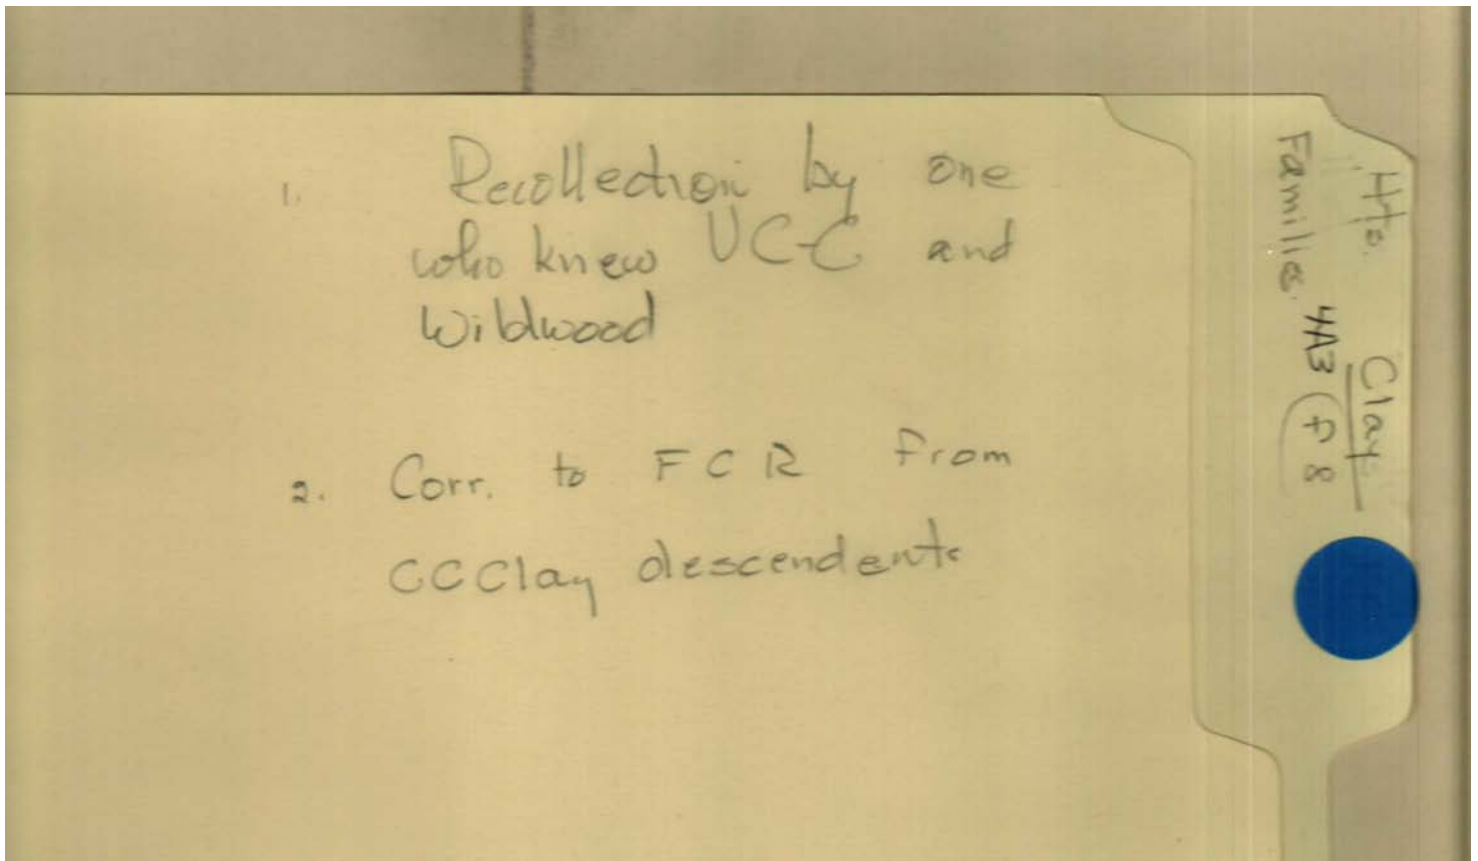 1. Recollection by one
who knew VCC and
Wildwood
2. Corr. to FCR from
CCClay descendents
Hts. Clay
Families 4A3 P8